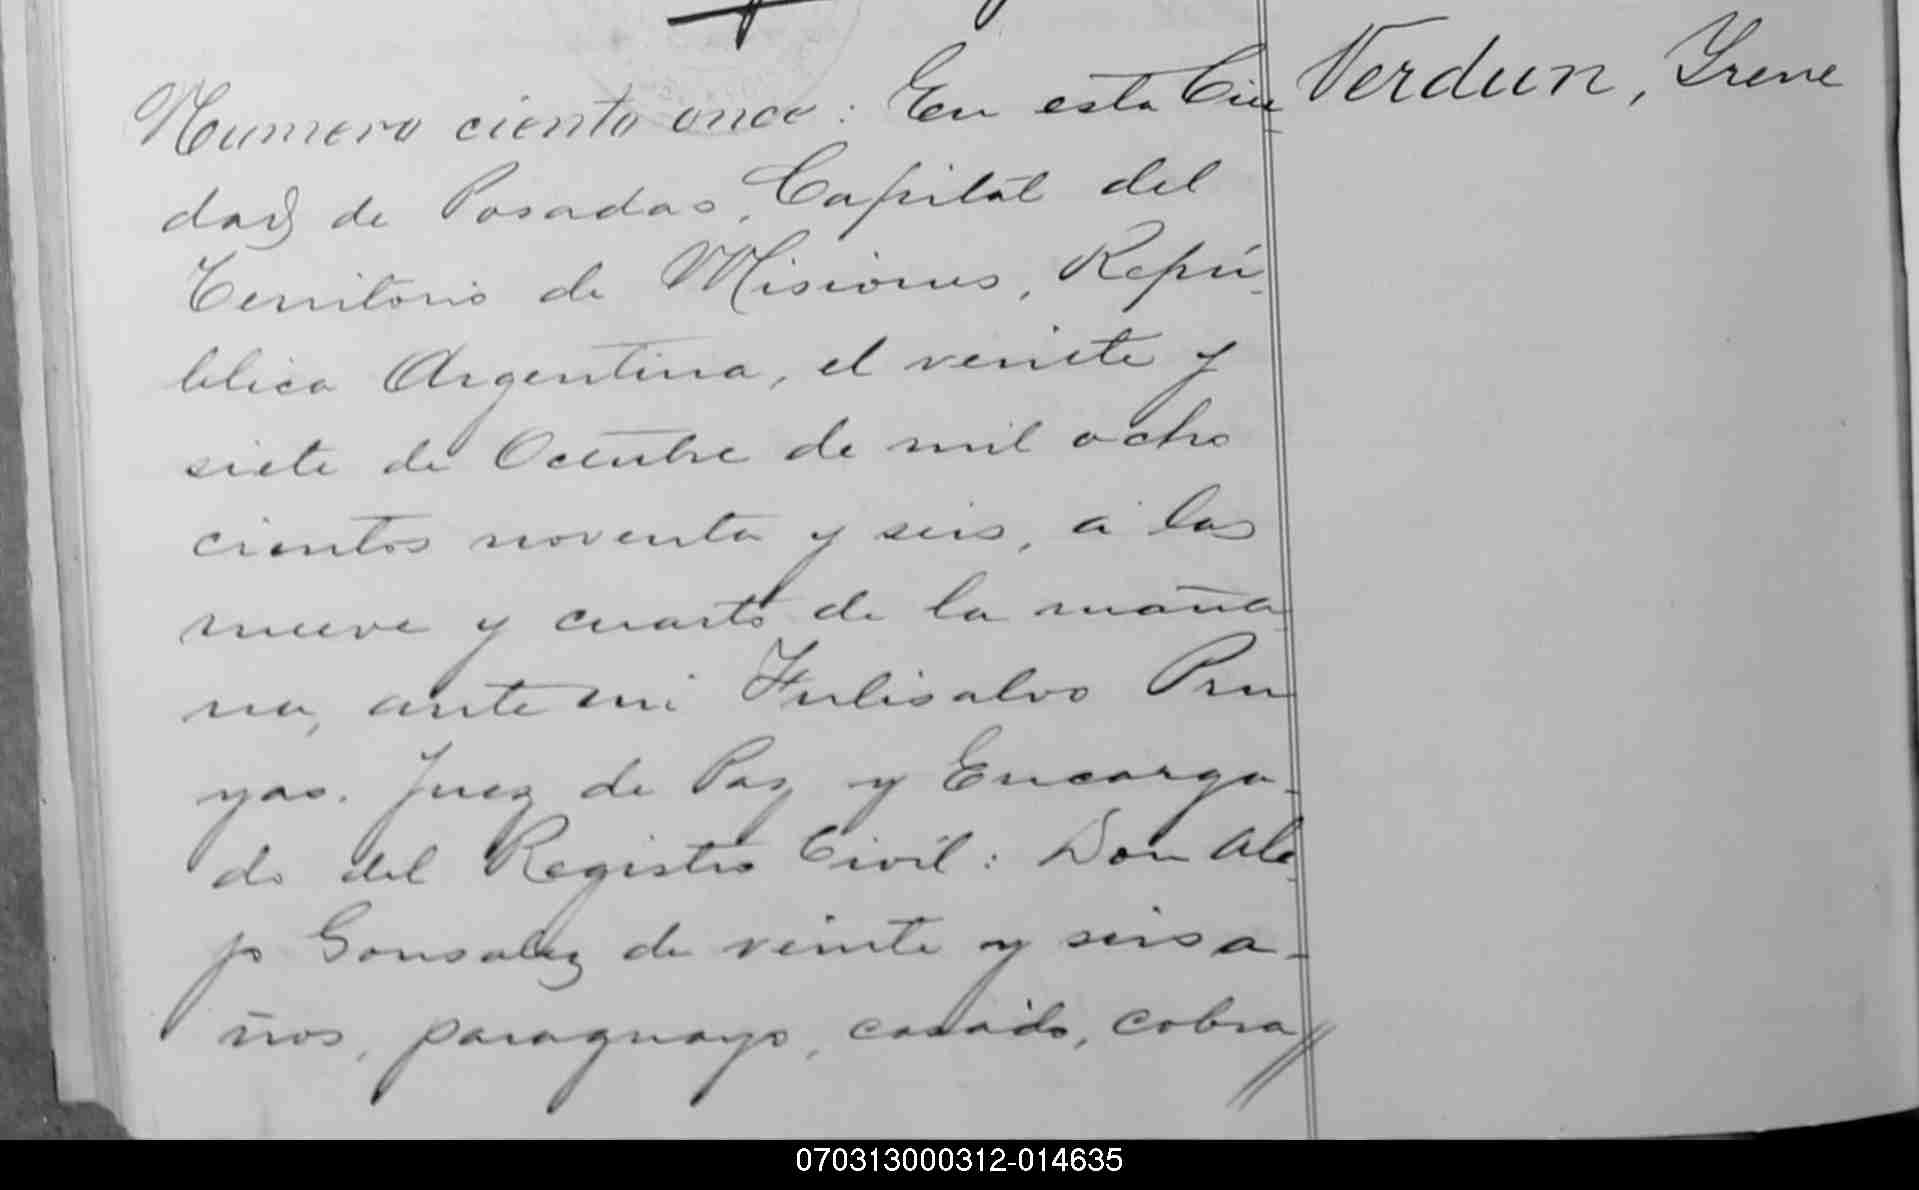 Numero ciento once: En esta Ciu-
dad de Posadas, Capital del
Territorio de Misiones, Repú-
blica Argentina, el veinte y
siete de Octubre de mil ocho
cientos noventa y seis, á las
nueve y cuarto de la maña-
na, ante mi Fulisalvo Pru
yas. Juez de Paz y Encarga-
do del Registro Civil: Don Ale-
jo Gonsalez de veinte y seis a-
ños, paraguayo, casado, cobra//
Verdun, Yrene
070313000312-014635